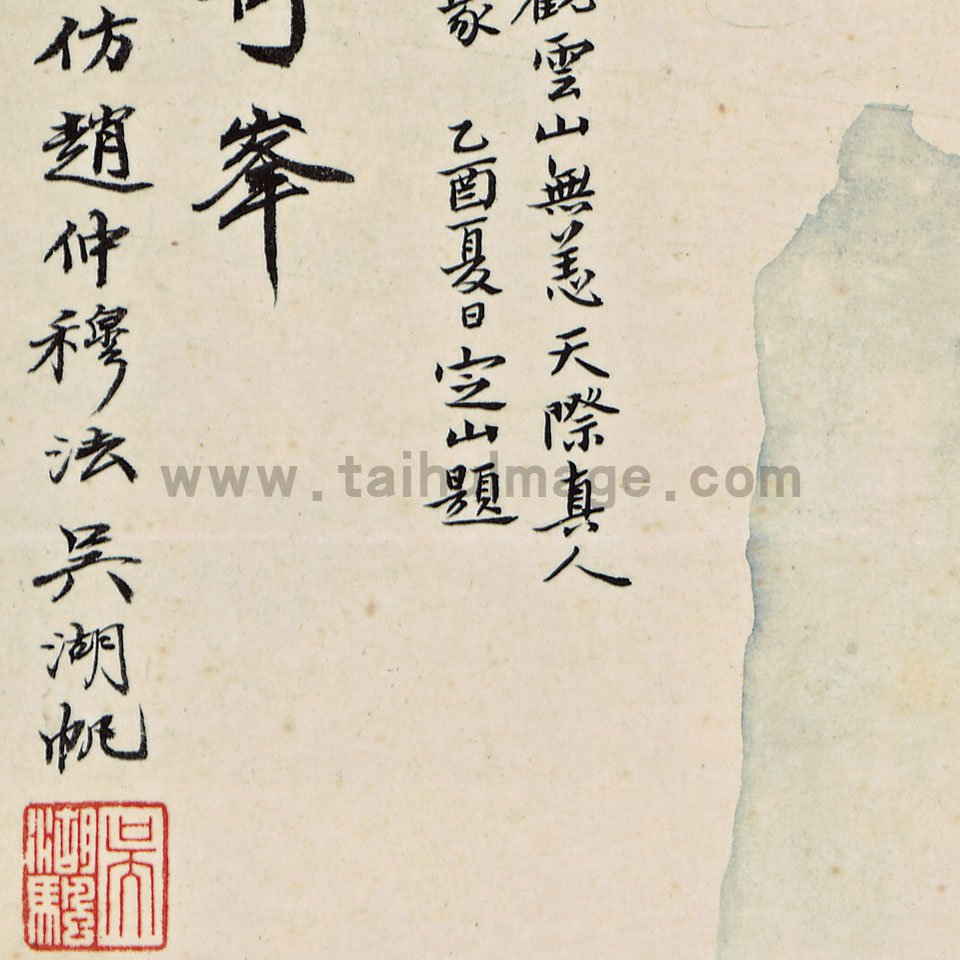 雲山無恙天際真人
乙酉夏日定山題
峯
仿趙仲穆法 吳湖帆
www.taihuimage.com